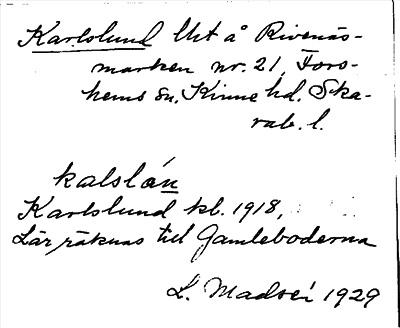 Karlslund lht å Rivenäs-
marken nr. 21, Fors-
hems sn, Kinne hd. Ska-
rab. l.
kalslán
Karlslund kb. 1918,
Lär räknas till Gamleboderna
L. Madsén 1929